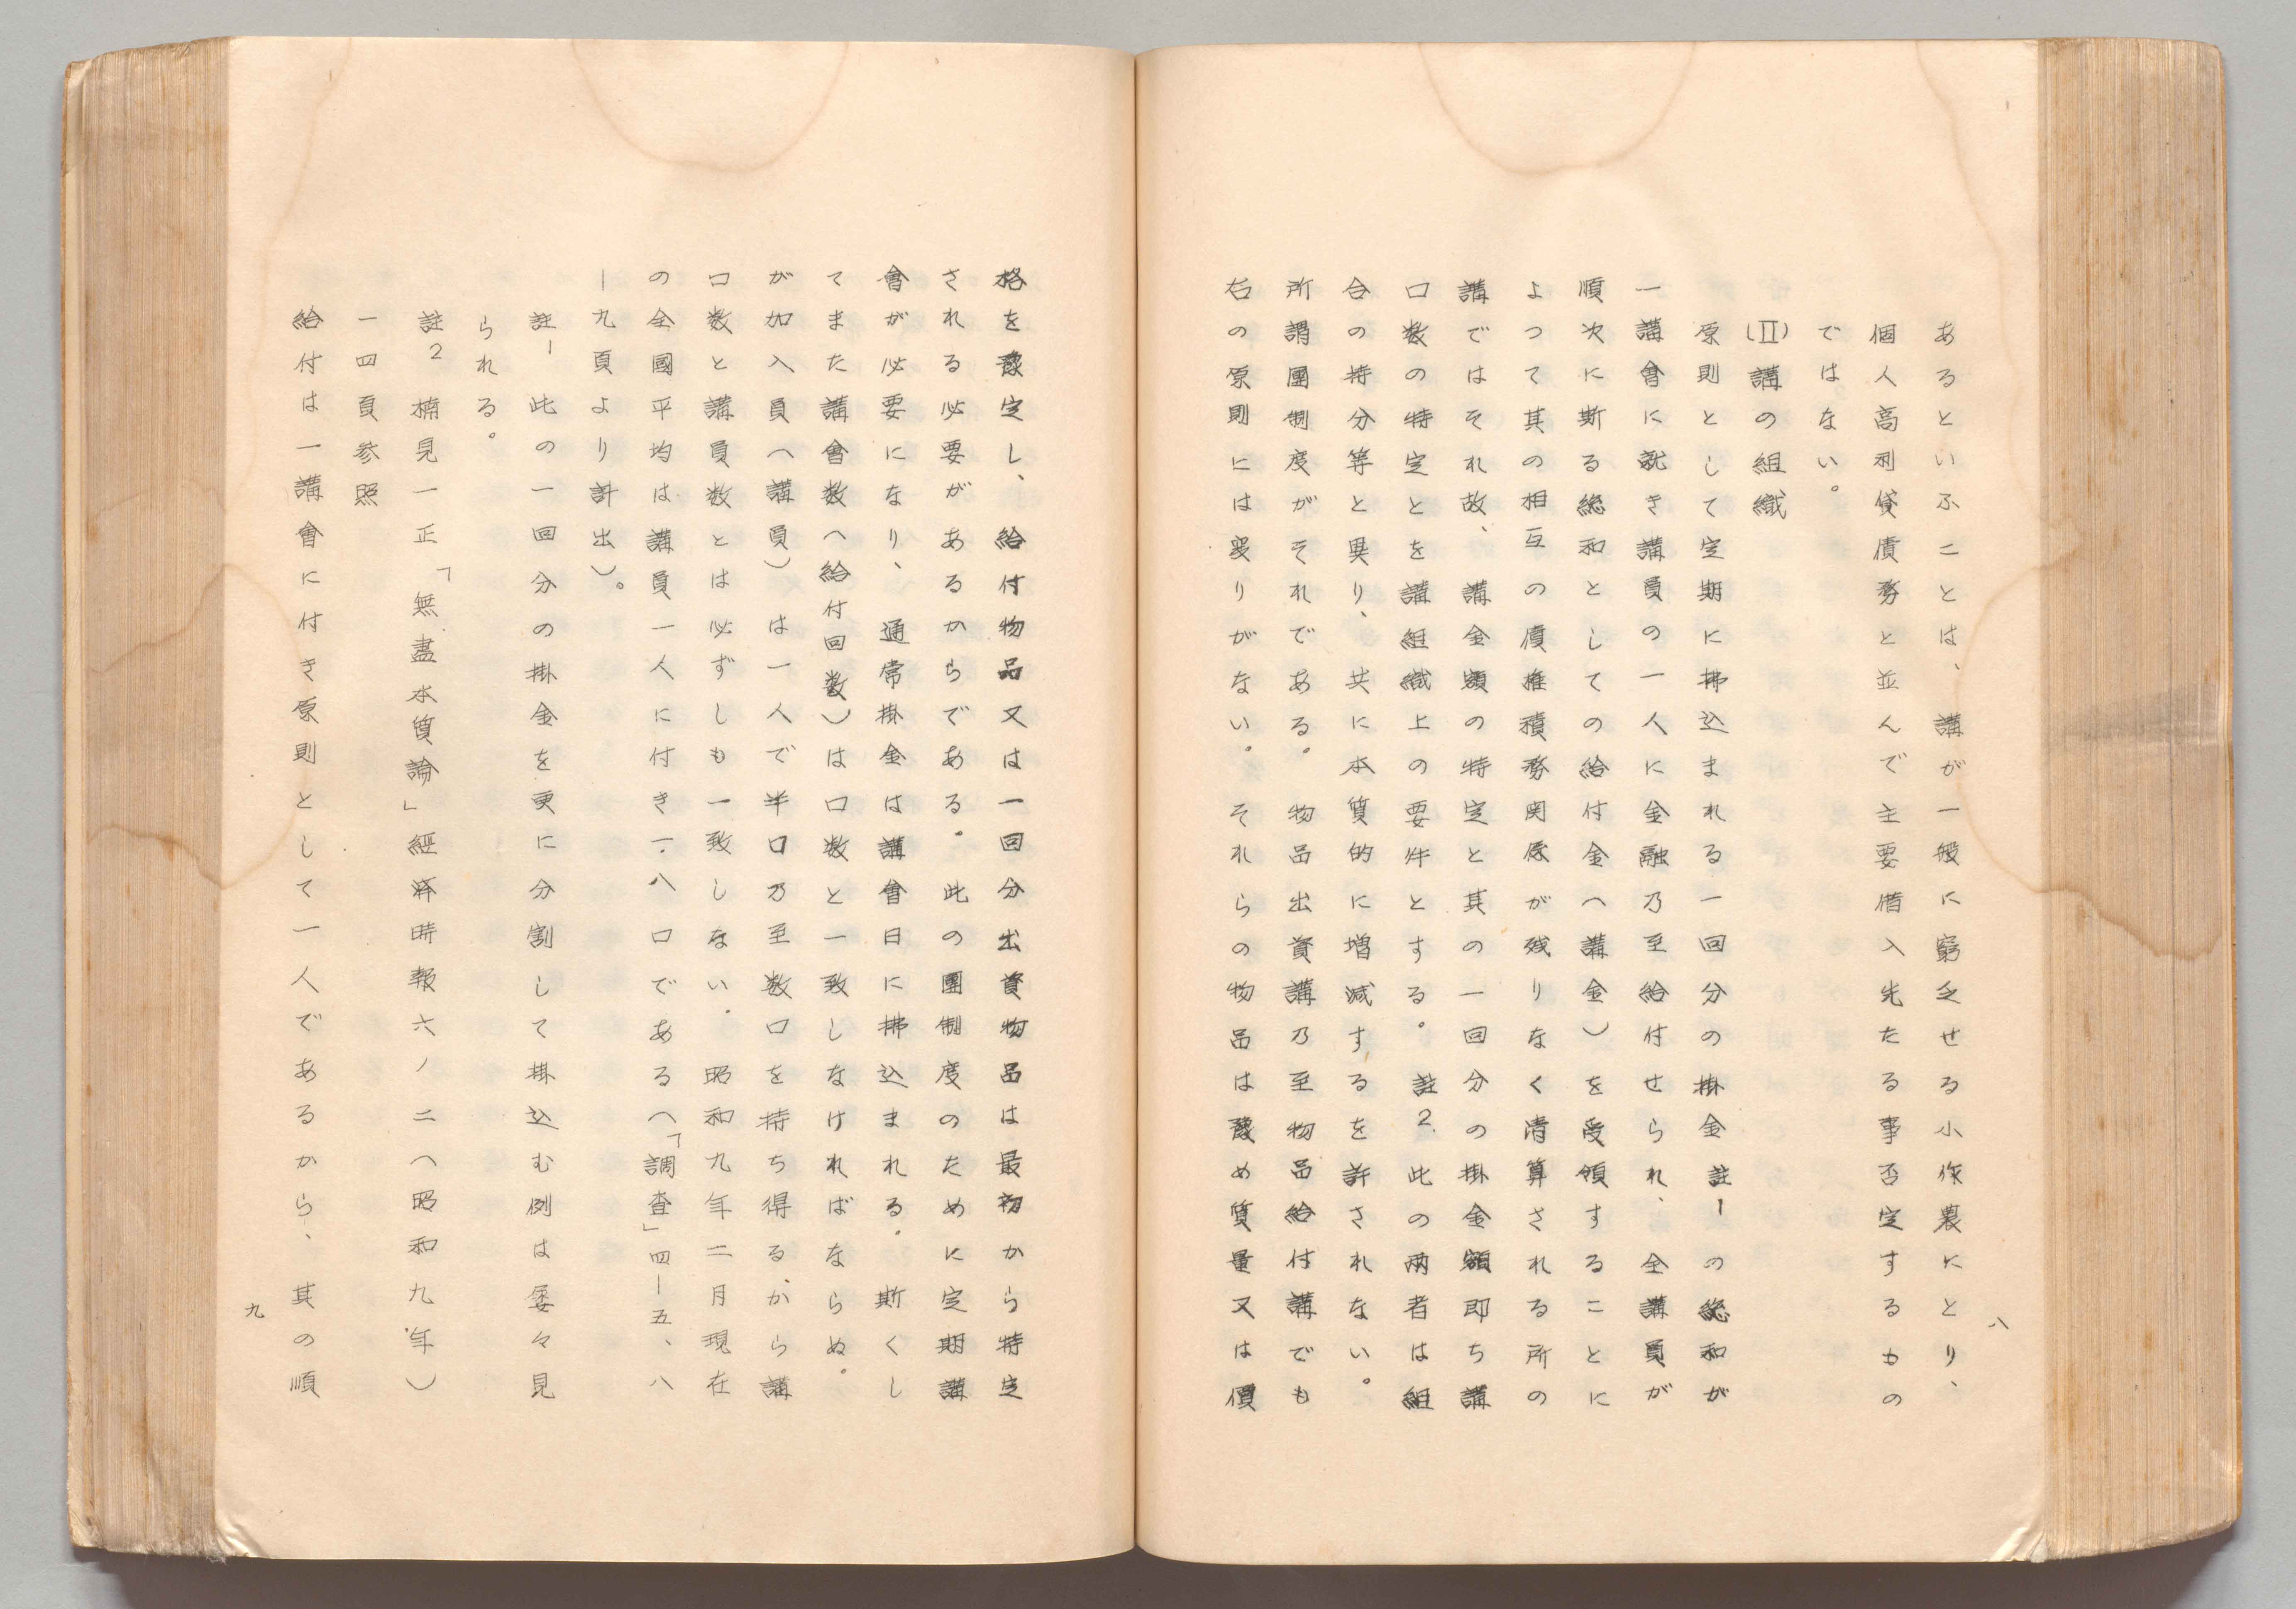 八
あるといふことは、講が一般に窮乏せる小作農にとり、
個人高利貸債務と並んで主要借入先たる事否定するもの
ではない。
(Ⅱ)講の組織
原則として定期に拂込まれる一回分の掛金 註1の総和が
一講會に就き講員の一人に金融乃至給付せられ、全講員が
順次に斯る総和としての給付金(講金)を受領することに
よつて其の相互の債権積務関係が残りなく清算される所の
講ではそれ故、講金額の特定と其の一回分の掛金額即ち講
口数の特定とを講組織上の要件とする。註2.此の両者は組
合の持分等と異り、共に本質的に増減するを許されない。
所謂團制度がそれである。物品出資講乃至物品給付講でも
右の原則には変りがない。それらの物品は豫め質量又は價
格を豫定し、給付物品又は一回分出資物品は最初から特定
される必要があるからである。此の團制度のために定期講
會が必要になり、通常掛金は講會日に拂込まれる。斯くし
てまた講會数(給付回数)は口数と一致しなければならぬ。
が加入員(講員)は一人で半口乃至数口を持ち得る、から講
口数と講員数とは必ずしも一致しない。昭和九年二月現在
の全國平均は講員一人に付き一.八口である(「調査」四ー五、八
ー九頁より計出)。
註1 此の一回分の掛金を更に分割して掛込む例は屡々見
られる。
註2 楠見一正「無盡本質論」經濟時報六ノ二(昭和九年)
一四頁参照
給付は一講會に付き原則として一人であるから、其の順
九